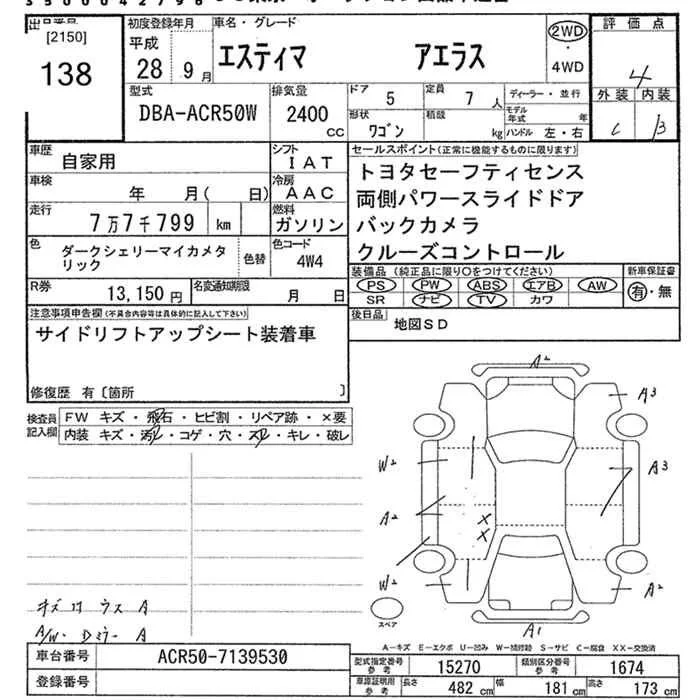 出品番号
[2150]
138
初度登録年月
平成
28 9月
車名・グレード
エスティマ アエラス
2WD
・
4WD
評価点
4
外装 内装
C B
型式
DBA-ACR50W
排気量
2400
CC
ドア
5
定員
7人
形状
ワゴン
積載
kg
ディーラー・並行
モデル年式 年
ハンドル 左・右
車歴
自家用
シフト
IAT
車検
年 月( 日)
冷房
AAC
走行
7万7千799 km
燃料
ガソリン
色
ダークシェリーマイカメタリック
色替
色コード
4W4
R券
13,150円
名変通知期限
月 日
セールスポイント(正常に機能するものに限ります)
トヨタセーフティセンス
両側パワースライドドア
バックカメラ
クルーズコントロール
装備品 (純正品に限り○をつけてください)
PS PW ABS エアB AW
SR ナビ TV カワ
新車保証書
有・無
後日品
地図SD
注意事項申告欄(不具合内容等は具体的に記入して下さい)
サイドリフトアップシート装着車
修復歴 有〔箇所 〕
検査員記入欄
FW キズ・飛石・ヒビ割・リペア跡・×要
内装 キズ・汚れ・コゲ・穴・スレ・キレ・破レ
A2
A3
W2
A3
A2
X
X
W2
A2
A1
スペア
キズ ウス A
A/W・Dミラー A
A−キズ E−エクボ U−凹み W−補修跡 S−サビ C−腐食 XX−交換済
車台番号
ACR50-7139530
シリアル番号
型式指定番号 参考
15270
類別区分番号 参考
1674
車庫証明用 参考
長さ 482 cm
幅 181 cm
高さ 173 cm